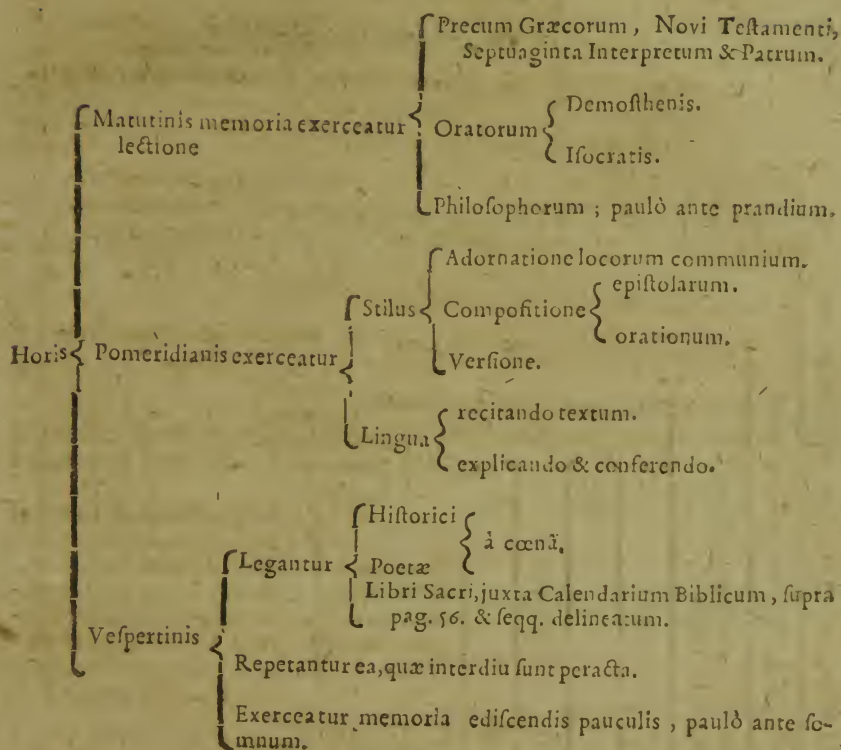 Precum Græcorum, Novi Teſtamenti,
Septuaginta Interpretum & Patrum.
Matutinis memoria exerceatur
lectione
Oratorum
Demoſthenis.
Iſocratis.
Philoſophorum ; paulò ante prandium.
Horis
Pomeridianis exerceatur
Stilus
Adornatione locorum communium.
Compoſitione
epiſtolarum.
orationum.
Verſione.
Lingua
recitando textum.
explicando & conferendo.
Veſpertinis
Legantur
Hiſtorici
Poetæ
à cœnâ.
Libri Sacri, juxta Calendarium Biblicum, ſupra
pag. 56. & ſeqq. delineatum.
Repetantur ea, quæ interdiu ſunt peracta.
Exerceatur memoria ediſcendis pauculis, paulò ante ſo-
mnum.